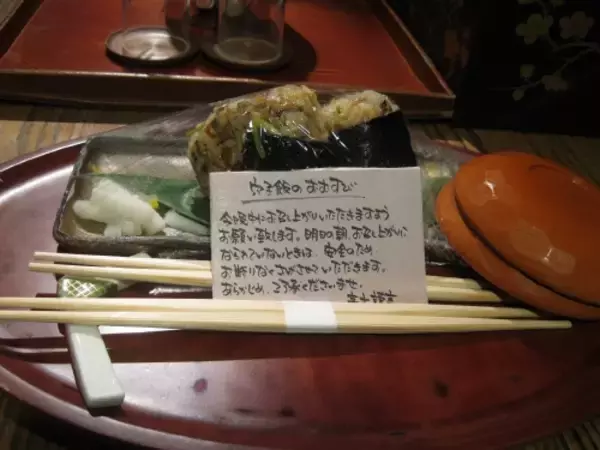 穴子飯のおむすび
今晩中にお召し上がりいただきますよう
お願い致します。明日の朝、お召し上がりに
なられていないときは、安全のため
お断りなくさげさせていただきます。
あらかじめ、ご了承くださいませ。